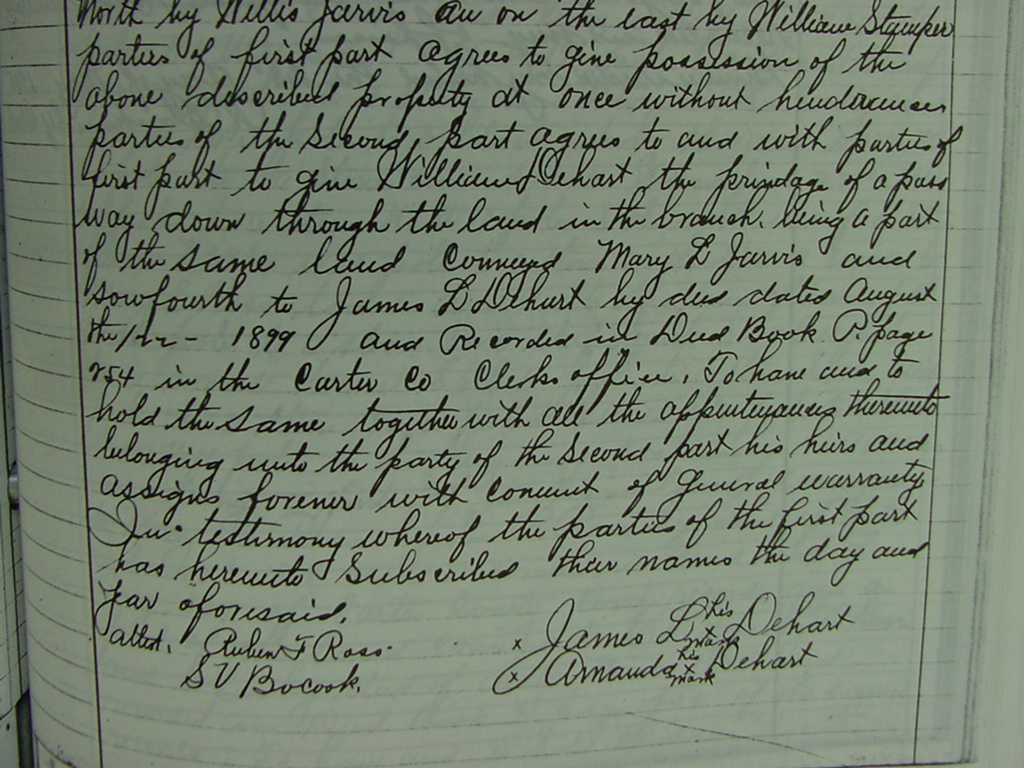 North by Willis Jarvis an on the east by William Stamper
parties of first part agrees to give possession of the
above described property at once without hinderances
parties of the second part agrees to and with parties of
first part to give William Dehart the privdage of a pass
way down through the land in the branch. being a part
of the same land conveyed Mary L Jarvis and
sowfourth to James L Dehart by deed dated August
the 1899 and Recorded in Deed Book P. page
254 in the Carter Co Clerks office. To have and to
hold the same together with all the appurtenances thereunto
belonging unto the party of the second part his heirs and
assigns forever with covenent of General warranty
In testimony whereof the parties of the first part
has hereunto Subscribed their names the day and
year aforesaid.
attest. Ruben F Ross x James L his mark Dehart
S V Bocook. x Amanda his x mark Dehart